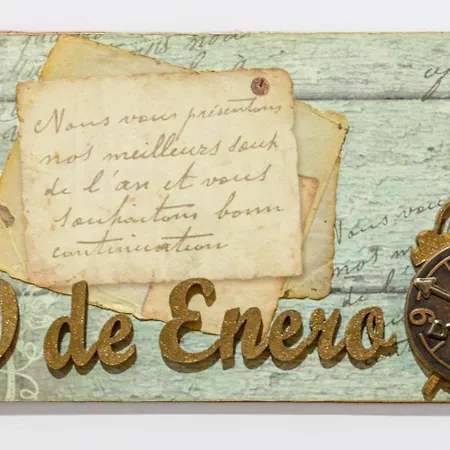 Nous vous présentons
nos meilleurs souh
de l'an et vous
souhaitons bonn
continuation
Nous vou
nos me
de l
0 de Enero